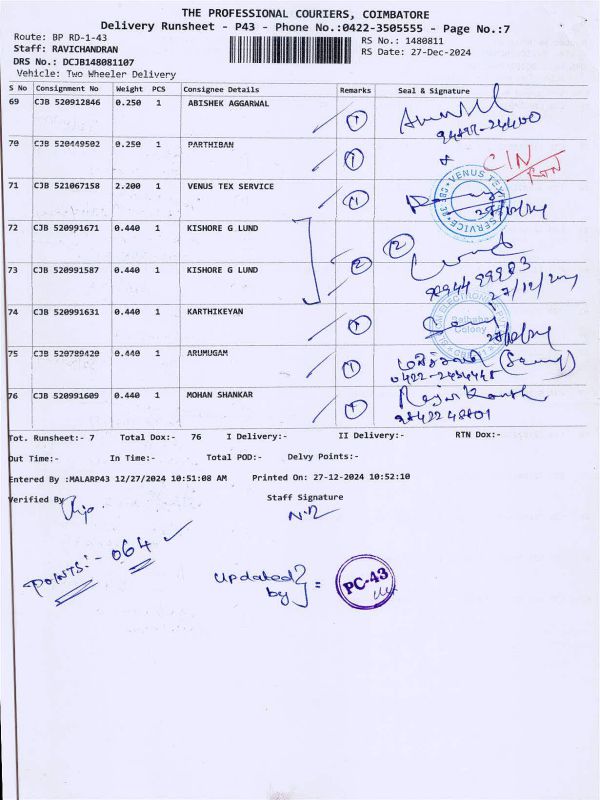 THE PROFESSIONAL COURIERS, COIMBATORE
Delivery Runsheet - P43 - Phone No.:0422-3505555 - Page No.:7
Route: BP RD-1-43
RS No.: 1480811
Staff: RAVICHANDRAN
RS Date: 27-Dec-2024
DRS No.: DCJB148081107
Vehicle: Two Wheeler Delivery
S No Consignment No Weight PCS Consignee Details Remarks Seal & Signature
69 CJB 520912846 0.250 1 ABISHEK AGGARWAL 1
70 CJB 520449502 0.250 1 PARTHIBAN 1 CIN RTN
71 CJB 521067158 2.200 1 VENUS TEX SERVICE 1 VENUS TEX SERVICE 27/12/24
72 CJB 520991671 0.440 1 KISHORE G LUND 2
73 CJB 520991587 0.440 1 KISHORE G LUND 2 27/12/2024
74 CJB 520991631 0.440 1 KARTHIKEYAN 1 Saibaba Colony
75 CJB 520789420 0.440 1 ARUMUGAM 1
76 CJB 520991609 0.440 1 MOHAN SHANKAR 1
Tot. Runsheet:- 7 Total Dox:- 76 I Delivery:- II Delivery:- RTN Dox:-
Out Time:- In Time:- Total POD:- Delvy Points:-
Entered By :MALARP43 12/27/2024 10:51:08 AM Printed On: 27-12-2024 10:52:10
Verified By Staff Signature
POINTS:- 064
Updated by } = PC-43